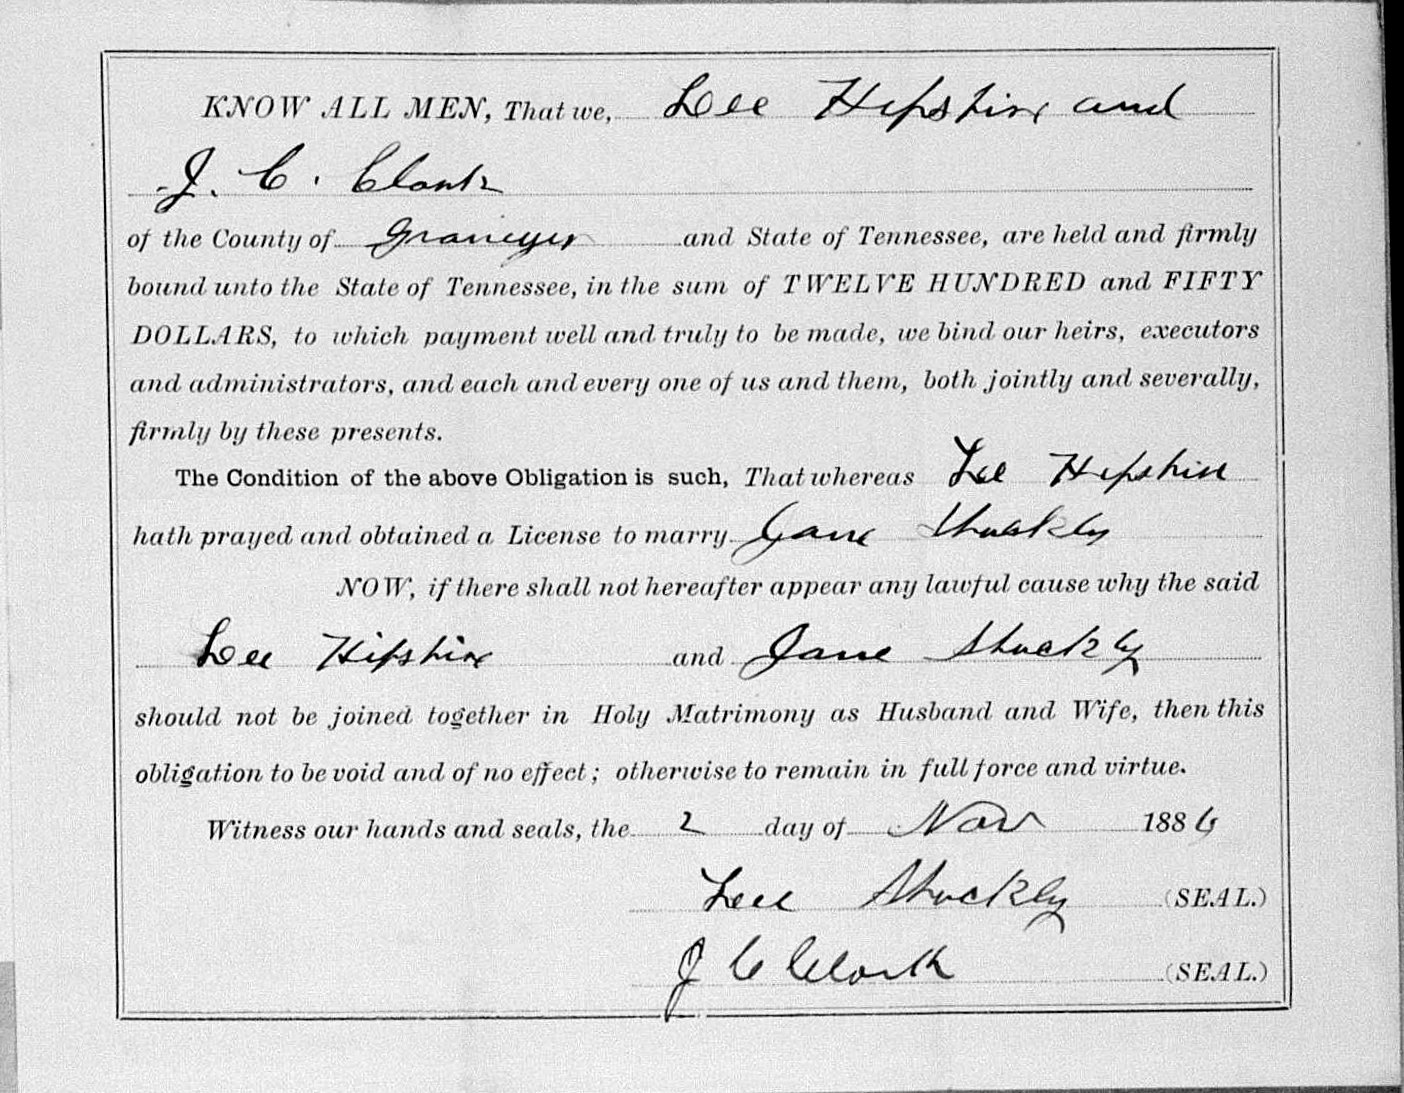 KNOW ALL MEN, That we, Lee Hipshire and
J. C. Clark
of the County of Grainger and State of Tennessee, are held and firmly
bound unto the State of Tennessee, in the sum of TWELVE HUNDRED and FIFTY
DOLLARS, to which payment well and truly to be made, we bind our heirs, executors
and administrators, and each and every one of us and them, both jointly and severally,
firmly by these presents.
The Condition of the above Obligation is such, That whereas Lee Hipshire
hath prayed and obtained a License to marry Jane Shuckly
NOW, if there shall not hereafter appear any lawful cause why the said
Lee Hipshire and Jane Shuckly
should not be joined together in Holy Matrimony as Husband and Wife, then this
obligation to be void and of no effect; otherwise to remain in full force and virtue.
Witness our hands and seals, the 2 day of Nov 1886
Lee Shuckly (SEAL.)
J C Clark (SEAL.)